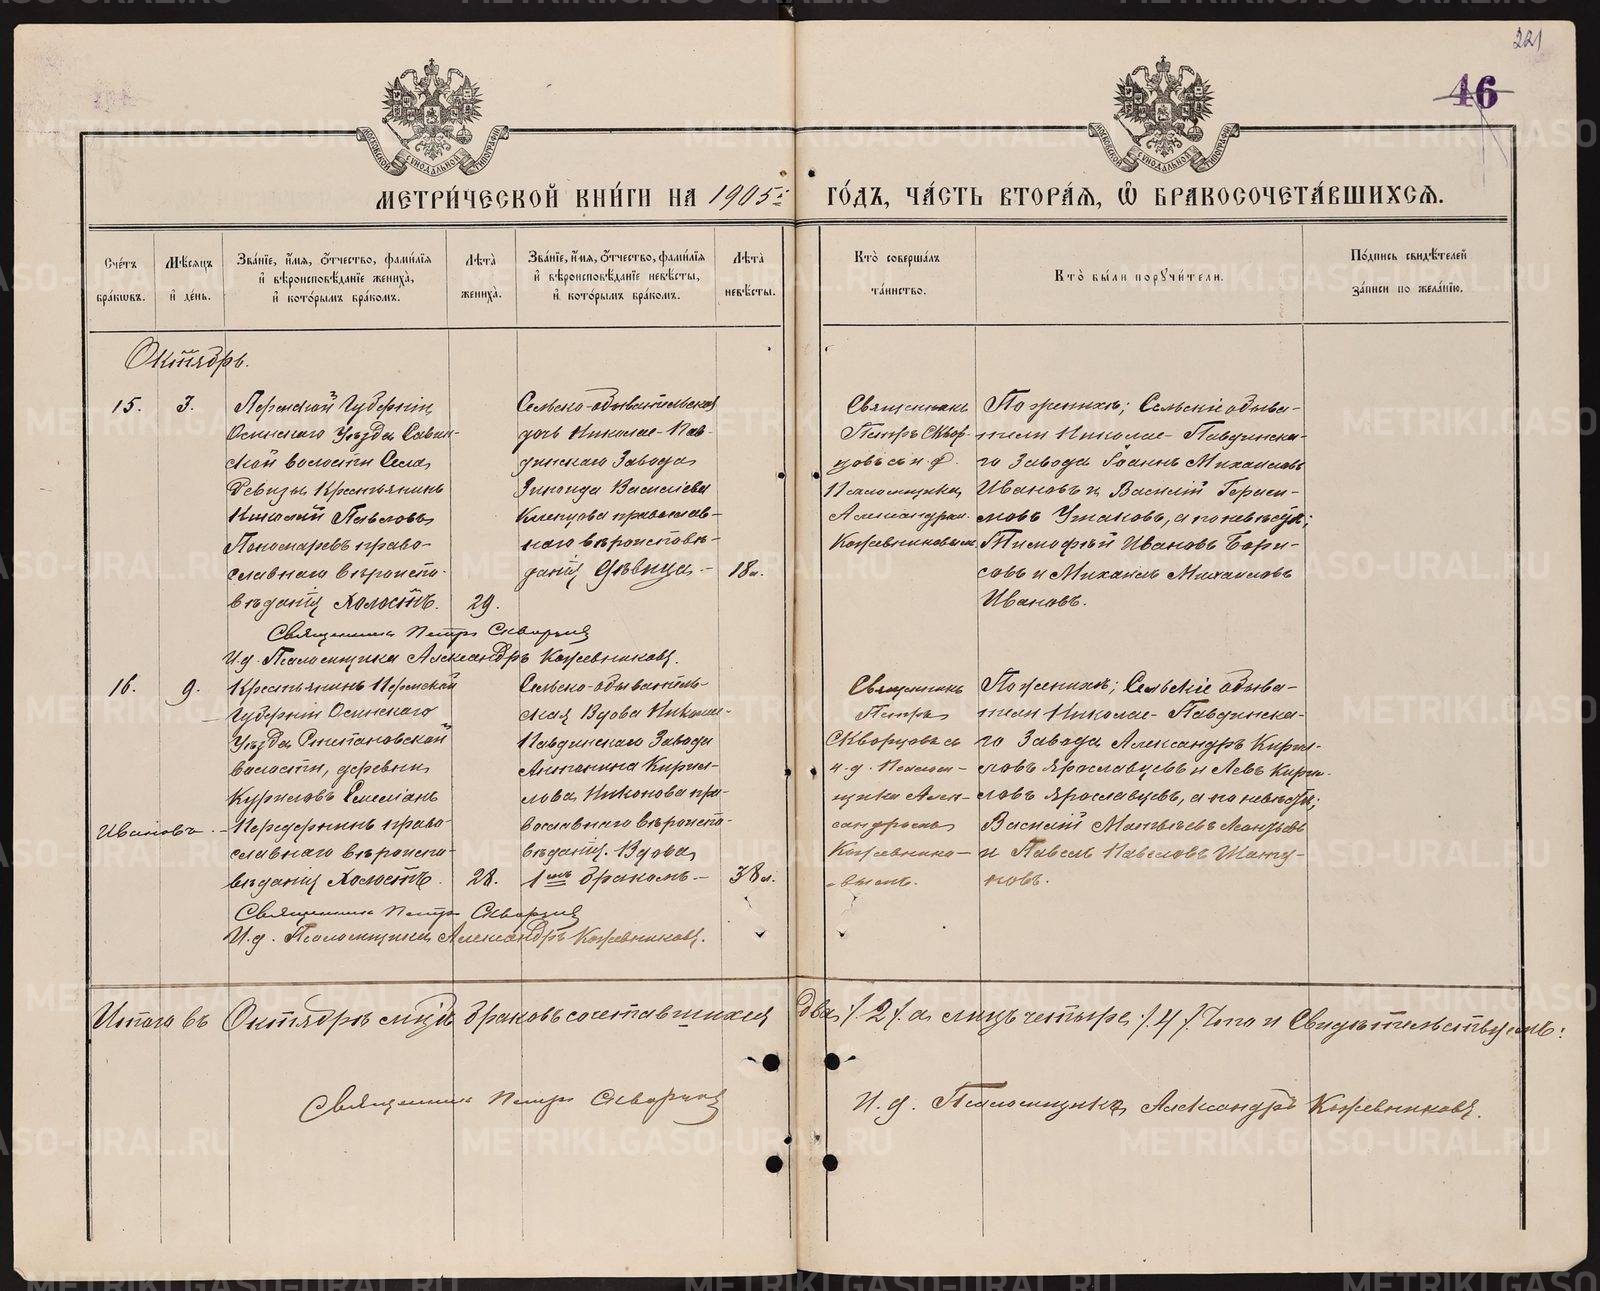 221
46
МЕТРИ́ЧЕСКОЙ КНИ́ГИ НА 1905: ГО́ДЪ, ЧА́СТЬ ВТОРА́Я, Ѽ БРАКОСОЧЕТА́ВШИХСЯ.
Сче́тъ бра́кѡвъ.
Мѣ́сяцъ и҆ де́нь.
Зва́нїе, и҆́мя, о҆́тчество, фами́лїя и҆ вѣроисповѣ́данїе жениха̀, и҆ кото́рымъ бра́комъ.
Лѣ́та жениха̀.
Зва́нїе, и҆́мя, о҆́тчество, фами́лїя и҆ вѣроисповѣ́данїе невѣ́сты, и҆ кото́рымъ бра́комъ.
Лѣ́та невѣ́сты.
Кто̀ соверша́лъ та́инство.
Кто̀ бы́ли поручи́тели.
По́дпись свидѣ́телей за́писи по жела́нїю.
Октябрь.
15.
3.
Пермской Губерніи
Осинскаго Уѣзда Савин-
ской волости Села
Ревизы Крестьянинъ
Николай Павловъ
Пономаревъ право-
славнаго вѣроиспо-
вѣданія Холостъ.
29.
Сельско-обывательская
дочь Николае-Пав-
динскаго Завода
Зинаида Васильева
Клепцова православ-
наго вѣроисповѣ-
данія дѣвица.-
18 л.
Священникъ
Петръ Сквор-
цовъ съ и. д.
Псаломщика
Александром
Кожевниковым
По женихѣ; Сельскіе обыва-
тели Николае-Павдинска-
го Завода Іоаннъ Михаиловъ
Ивановъ и Василій Гераси-
мовъ Ушаковъ, а по невѣстѣ;
Тимофѣй Ивановъ Бори-
совъ и Михаилъ Михаиловъ
Ивановъ.
Священникъ Петръ Скворцов
И. д. Псаломщика Александръ Кожевниковъ.
16.
9.
Крестьянинъ Пермской
Губерніи Осинскаго
Уѣзда Степановской
волости, деревни
Курилов Емеліанъ
Ивановъ. - Передернинъ право-
славнаго вѣроиспо-
вѣданія Холостъ.
28.
Сельско-обыватель-
ская Вдова Николае-
Павдинскаго Завода
Антонина Кирил-
лова Никонова пра-
вославнаго вѣроиспо-
вѣданія. Вдова,
1мъ бракомъ.-
38 л.
Священникъ
Петръ
Скворцовъ съ
и. д. Псалом-
щика Алек-
сандромъ
Кожевнико-
вымъ.
По женихѣ; Сельскіе обыва-
тели Николае-Павдинска-
го Завода Александръ Кирил-
ловъ Ярославцевъ и Левъ Кирил-
ловъ Ярославцевъ, а по невѣстѣ;
Василій Матвѣевъ
и Павелъ Павловъ
новъ.
Священникъ Петръ Скворцов
И. д. Псаломщика Александръ Кожевниковъ.
Итого въ Октябрѣ м-цѣ браковъ сочетавшихся два /2/ а лицъ четыре /4/ Что и Свидѣтельствуемъ:
Священникъ Петръ Скворцов
И. д. Псаломщика Александръ Кожевниковъ.
METRIKI.GASO-URAL.RU